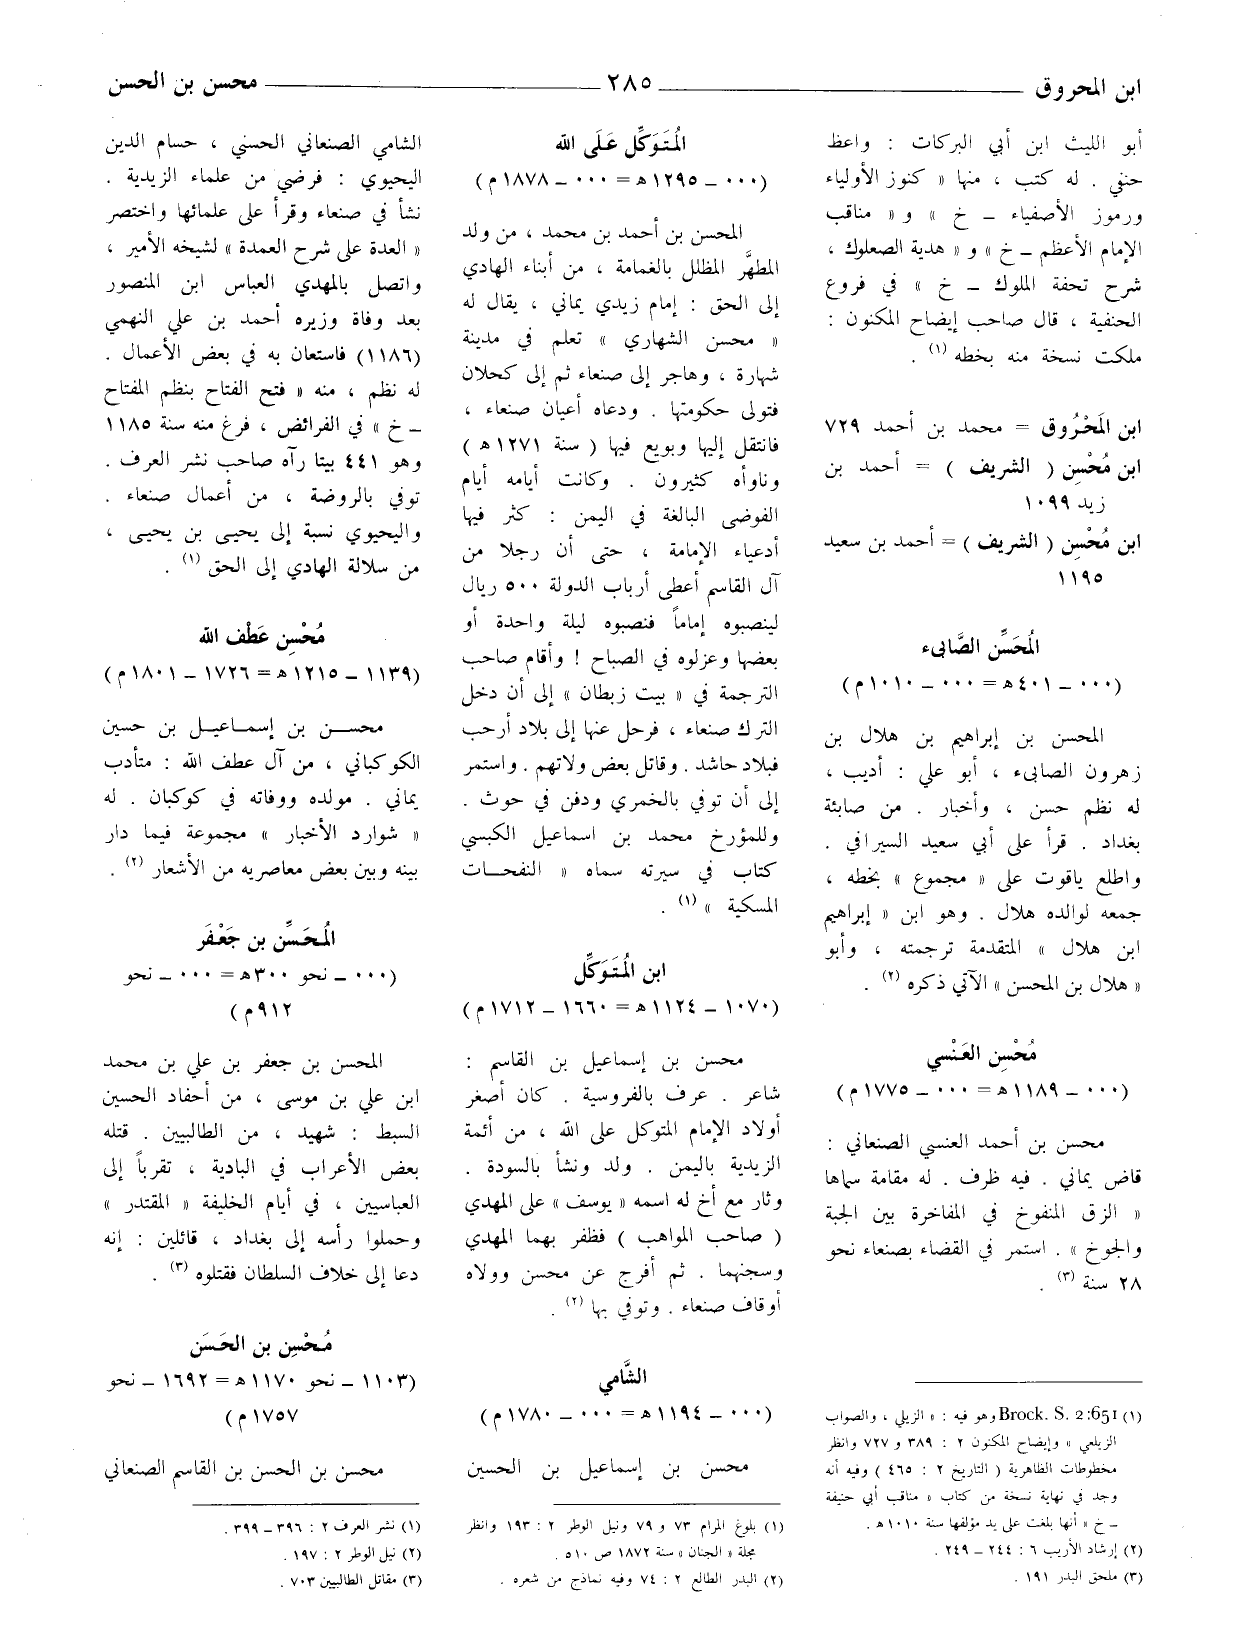 ابن المحروق ٢٨٥ محسن بن الحسن
أبو الليث ابن أبي البركات : واعظ
حنفي . له كتب ، منها « كنوز الأولياء
ورموز الأصفياء ـ خ » و « مناقب
الإمام الأعظم ـ خ » و « هدية الصعلوك ،
شرح تحفة الملوك ـ خ » في فروع
الحنفية ، قال صاحب إيضاح المكنون :
ملكت نسخة منه بخطه (١) .
ابن المَحْرُوق = محمد بن أحمد ٧٢٩
ابن مُحْسِن ( الشريف ) = أحمد بن
زيد ١٠٩٩
ابن مُحْسِن ( الشريف ) = أحمد بن سعيد
١١٩٥
المُحَسِّن الصَّابىء
(٠٠٠ ـ ٤٠١ ه = ٠٠٠ ـ ١٠١٠ م)
المحسن بن إبراهيم بن هلال بن
زهرون الصابىء ، أبو علي : أديب ،
له نظم حسن ، وأخبار . من صابئة
بغداد . قرأ على أبي سعيد السيرافي .
واطلع ياقوت على « مجموع » بخطه ،
جمعه لوالده هلال . وهو ابن « إبراهيم
ابن هلال » المتقدمة ترجمته ، وأبو
« هلال بن المحسن » الآتي ذكره (٢) .
مُحْسِن العَنْسي
(٠٠٠ ـ ١١٨٩ ه = ٠٠٠ ـ ١٧٧٥ م)
محسن بن أحمد العنسي الصنعاني :
قاض يماني . فيه ظرف . له مقامة سماها
« الزق المنفوخ في المفاخرة بين الجبة
والجوخ » . استمر في القضاء بصنعاء نحو
٢٨ سنة (٣) .
(١) Brock. S. 2:651 وهو فيه : « الزيلي ، والصواب
الزيلعي » وإيضاح المكنون ٢ : ٣٨٩ و ٧٢٧ وانظر
مخطوطات الظاهرية ( التاريخ ٢ : ٤٦٥ ) وفيه أنه
وجد في نهاية نسخة من كتاب « مناقب أبي حنيفة
ـ خ » أنها بلغت على يد مؤلفها سنة ١٠١٠ ه .
(٢) إرشاد الأريب ٦ : ٢٤٤ ـ ٢٤٩ .
(٣) ملحق البدر ١٩١ .
المُتَوَكِّل عَلَى الله
(٠٠٠ ـ ١٢٩٥ ه = ٠٠٠ ـ ١٨٧٨ م)
المحسن بن أحمد بن محمد ، من ولد
المطهَّر المظلل بالغمامة ، من أبناء الهادي
إلى الحق : إمام زيدي يماني ، يقال له
« محسن الشهاري » تعلم في مدينة
شهارة ، وهاجر إلى صنعاء ثم إلى كحلان
فتولى حكومتها . ودعاه أعيان صنعاء ،
فانتقل إليها وبويع فيها ( سنة ١٢٧١ ه )
وناوأه كثيرون . وكانت أيامه أيام
الفوضى البالغة في اليمن : كثر فيها
أدعياء الإمامة ، حتى أن رجلا من
آل القاسم أعطى أرباب الدولة ٥٠٠ ريال
لينصبوه إماماً فنصبوه ليلة واحدة أو
بعضها وعزلوه في الصباح ! وأقام صاحب
الترجمة في « بيت زبطان » إلى أن دخل
الترك صنعاء ، فرحل عنها إلى بلاد أرحب
فبلاد حاشد . وقاتل بعض ولاتهم . واستمر
إلى أن توفي بالخمري ودفن في حوث .
وللمؤرخ محمد بن اسماعيل الكبسي
كتاب في سيرته سماه « النفحات
المسكية » (١) .
ابن المُتَوَكِّل
(١٠٧٠ ـ ١١٢٤ ه = ١٦٦٠ ـ ١٧١٢ م)
محسن بن إسماعيل بن القاسم :
شاعر . عرف بالفروسية . كان أصغر
أولاد الإمام المتوكل على الله ، من أئمة
الزيدية باليمن . ولد ونشأ بالسودة .
وثار مع أخ له اسمه « يوسف » على المهدي
( صاحب المواهب ) فظفر بهما المهدي
وسجنهما . ثم أفرج عن محسن وولاه
أوقاف صنعاء . وتوفي بها (٢) .
الشَّامي
(٠٠٠ ـ ١١٩٤ ه = ٠٠٠ ـ ١٧٨٠ م)
محسن بن إسماعيل بن الحسين
(١) بلوغ المرام ٧٣ و ٧٩ ونيل الوطر ٢ : ١٩٣ وانظر
مجلة « الجنان » سنة ١٨٧٢ ص ٥١٠ .
(٢) البدر الطالع ٢ : ٧٤ وفيه نماذج من شعره .
الشامي الصنعاني الحسني ، حسام الدين
اليحيوي : فرضي من علماء الزيدية .
نشأ في صنعاء وقرأ على علمائها واختصر
« العدة على شرح العمدة » لشيخه الأمير ،
واتصل بالمهدي العباس ابن المنصور
بعد وفاة وزيره أحمد بن علي النهمي
(١١٨٦) فاستعان به في بعض الأعمال .
له نظم ، منه « فتح الفتاح بنظم المفتاح
ـ خ » في الفرائض ، فرغ منه سنة ١١٨٥
وهو ٤٤١ بيتا رآه صاحب نشر العرف .
توفي بالروضة ، من أعمال صنعاء .
واليحيوي نسبة إلى يحيى بن يحيى ،
من سلالة الهادي إلى الحق (١) .
مُحْسِن عَطْف الله
(١١٣٩ ـ ١٢١٥ ه = ١٧٢٦ ـ ١٨٠١ م)
محسن بن إسماعيل بن حسين
الكوكباني ، من آل عطف الله : متأدب
يماني . مولده ووفاته في كوكبان . له
« شوارد الأخبار » مجموعة فيما دار
بينه وبين بعض معاصريه من الأشعار (٢) .
المُحَسِّن بن جَعْفَر
(٠٠٠ ـ نحو ٣٠٠ ه = ٠٠٠ ـ نحو
٩١٢ م)
المحسن بن جعفر بن علي بن محمد
ابن علي بن موسى ، من أحفاد الحسين
السبط : شهيد ، من الطالبيين . قتله
بعض الأعراب في البادية ، تقرباً إلى
العباسيين ، في أيام الخليفة « المقتدر »
وحملوا رأسه إلى بغداد ، قائلين : إنه
دعا إلى خلاف السلطان فقتلوه (٣) .
مُحْسِن بن الحَسَن
(١١٠٣ ـ نحو ١١٧٠ ه = ١٦٩٢ ـ نحو
١٧٥٧ م)
محسن بن الحسن بن القاسم الصنعاني
(١) نشر العرف ٢ : ٣٩٦ ـ ٣٩٩ .
(٢) نيل الوطر ٢ : ١٩٧ .
(٣) مقاتل الطالبيين ٧٠٣ .